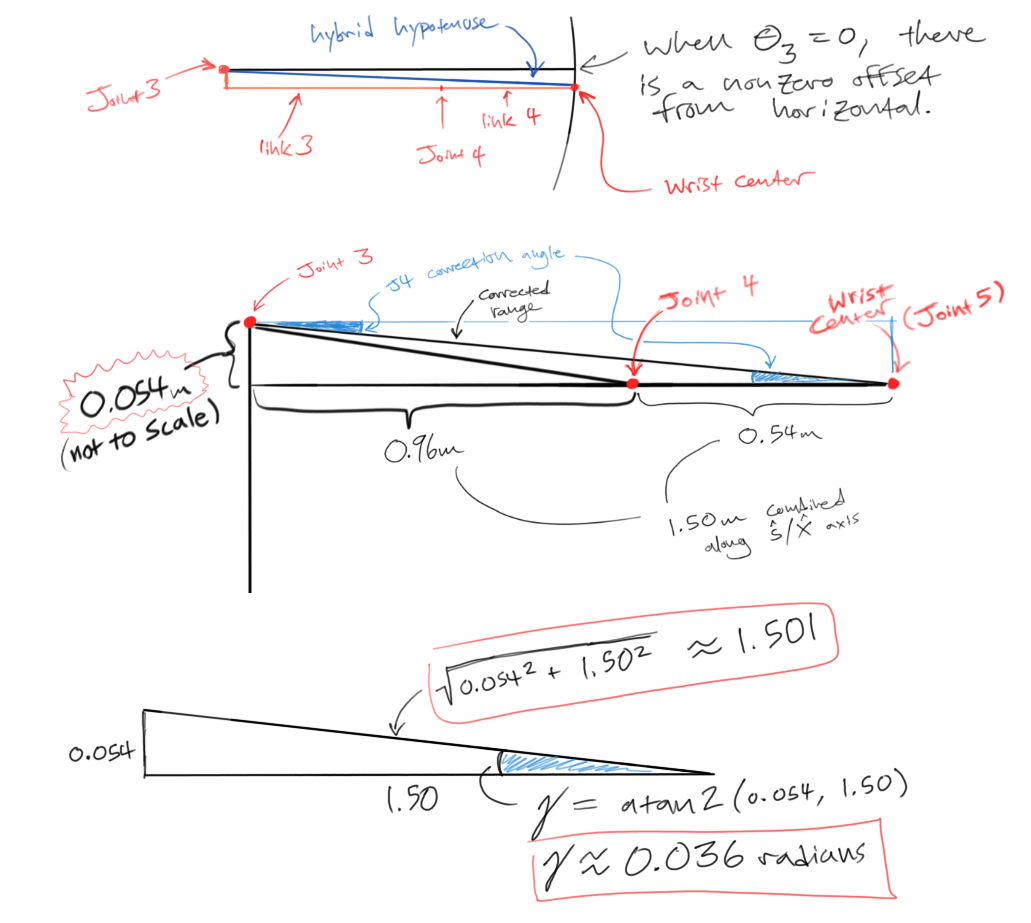 hybrid hypotenuse
when Θ₃ = 0, there
is a nonzero offset
from horizontal.
Joint 3
link 3
Joint 4
link 4
Wrist center
Joint 3
J4 correction angle
corrected
range
Joint 4
Wrist
center
(Joint 5)
0.054m
(not to scale)
0.96m
0.54m
1.50m combined
along ŝ/x̂ axis
√0.054² + 1.50² ≈ 1.501
0.054
1.50
γ = atan2(0.054, 1.50)
γ ≈ 0.036 radians